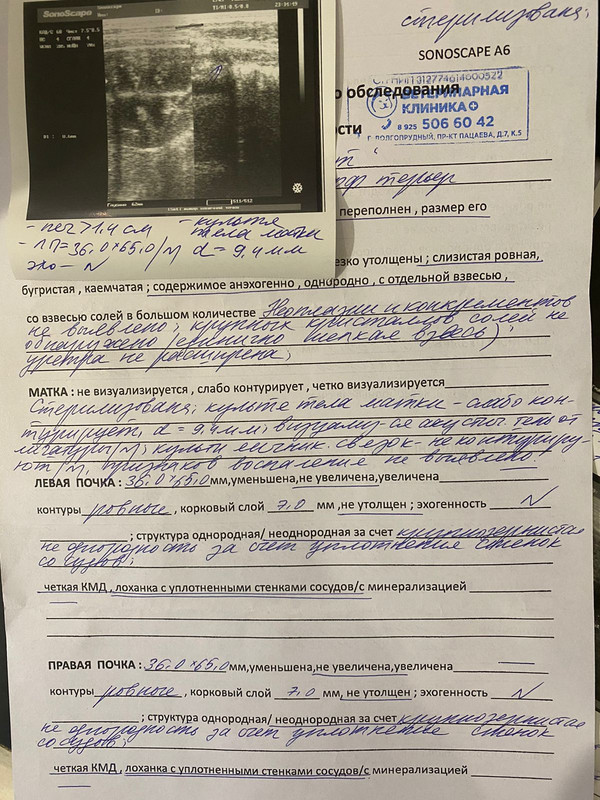 SonoScape
стерилизована;
SONOSCAPE A6
ОГРНИП 312774614600522
о обследования
ВЕТЕРИНАРНАЯ
КЛИНИКА+
8 925 506 60 42
Г. ДОЛГОПРУДНЫЙ, ПР-КТ ПАЦАЕВА, Д.7, К.5
ости
терьер
переполнен , размер его
- культя
тела матки
d = 9,4 мм
- печ > 1,4 см
- ЛП = 36,0 × 65,0 / N
эхо - N
езко утолщены ; слизистая ровная,
бугристая , каемчатая ; содержимое анэхогенно , однородно , с отдельной взвесью ,
со взвесью солей в большом количестве Неоплазии и конкрементов
не выявлено; крупных кристаллов солей не
обнаружено (единично мелкая взвесь);
уретра не расширена;
МАТКА : не визуализируется , слабо контурирует , четко визуализируется
Стерилизована; культя тела матки - слабо кон-
турирует, d = 9,4 мм; визуализу-ся акустич. тень от
лигатуры /N/; культи яичник. связок - не контуриру-
ют /N/, признаков воспаления не выявлено.
ЛЕВАЯ ПОЧКА : 36,0 × 65,0 мм,уменьшена,не увеличена,увеличена
контуры ровные , корковый слой 7,0 мм ,не утолщен ; эхогенность N
; структура однородная/ неоднородная за счет крупнозернистая
не однородность за счет уплотнения стенок
сосудов;
четкая КМД , лоханка с уплотненными стенками сосудов/с минерализацией
ПРАВАЯ ПОЧКА : 36,0 × 65,0 мм,уменьшена,не увеличена,увеличена
контуры ровные , корковый слой 7,0 мм, не утолщен ; эхогенность N
; структура однородная/ неоднородная за счет крупнозернистая
не однородность за счет уплотнения стенок
сосудов;
четкая КМД , лоханка с уплотненными стенками сосудов/с минерализацией